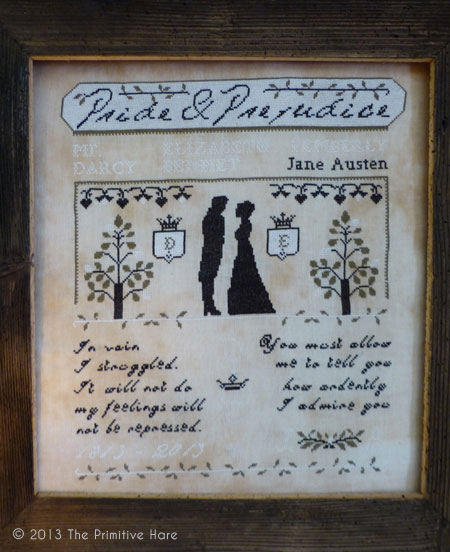 Pride & Prejudice
Mr. ELIZABETH PEMBERLY
DARCY BENNET Jane Austen
D E
In vain
I struggled.
It will not do
my feelings will
not be repressed.
You must allow
me to tell you
how ardently
I admire you
1813 - 2013
© 2013 The Primitive Hare